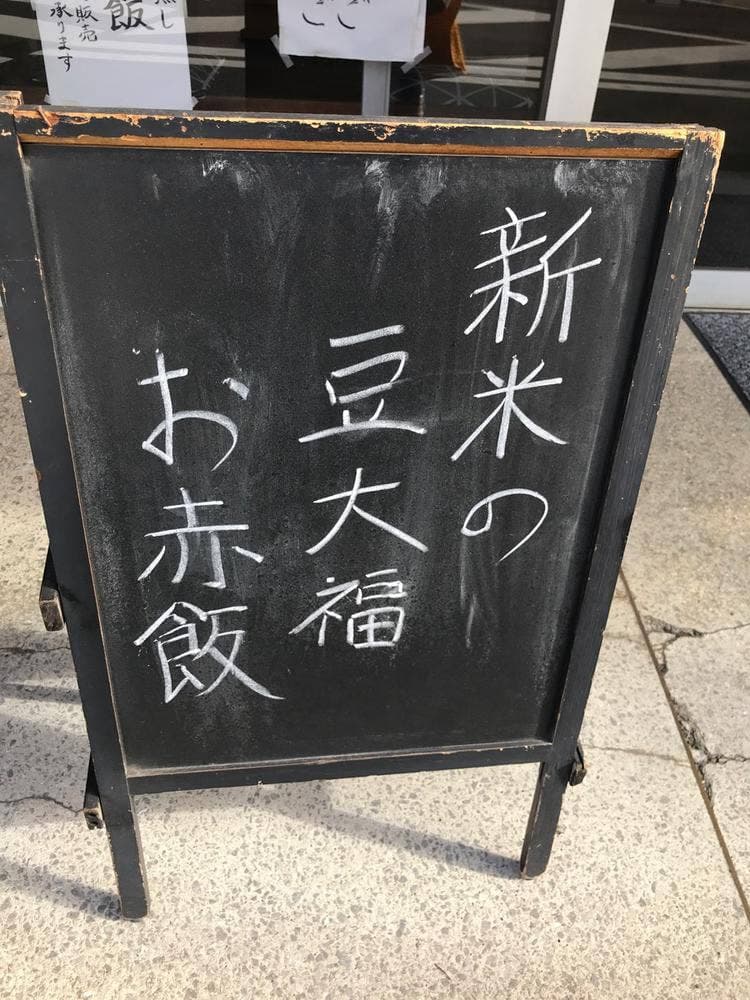 新米の
豆大福
お赤飯
飯
販売
承ります